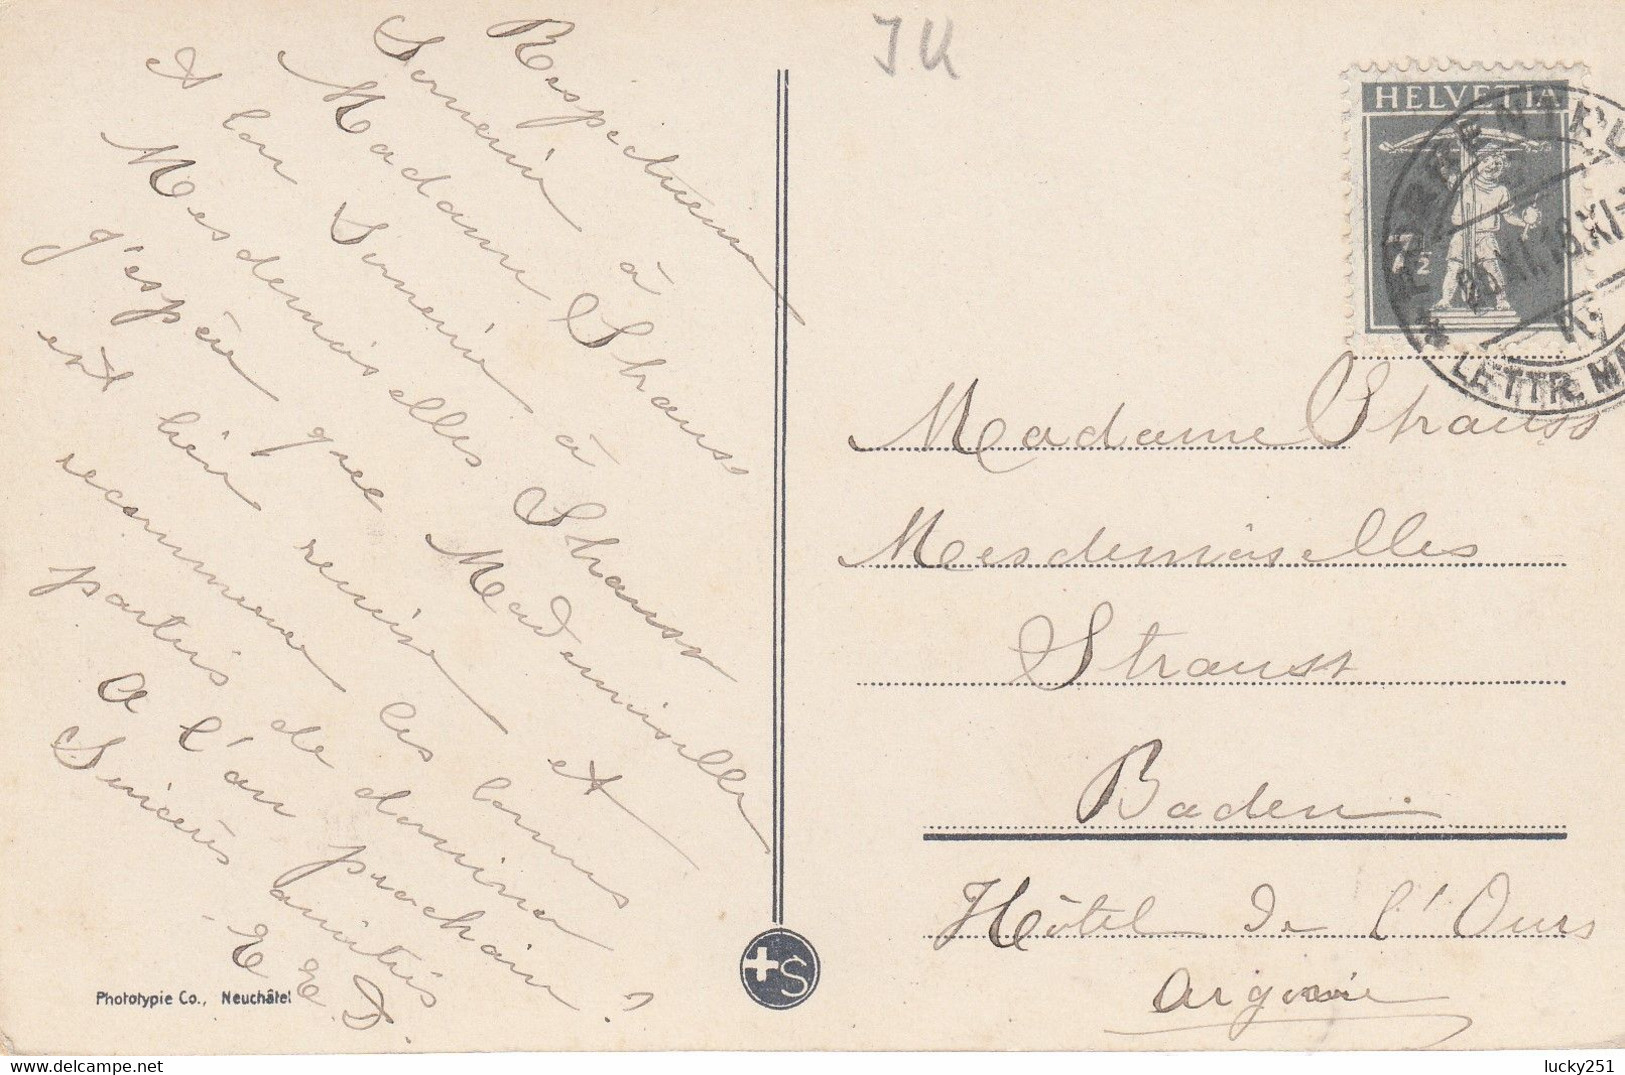 Respectueux
Souvenir à
Madame Strauss
A bon Souvenir à
Mesdemoiselles Strauss
J'espère que Mademoiselle
est bien remise et
recommence les bonnes
parties de domino
A l'an prochain ?
Sincères amitiés
E. E. D.
Phototypie Co., Neuchâtel
+S
JK
HELVETIA
7½
LETTR.
Madame Strauss
Mesdemoiselles
Strauss
Baden
Hôtel de l'Ours
Argovie
lucky251